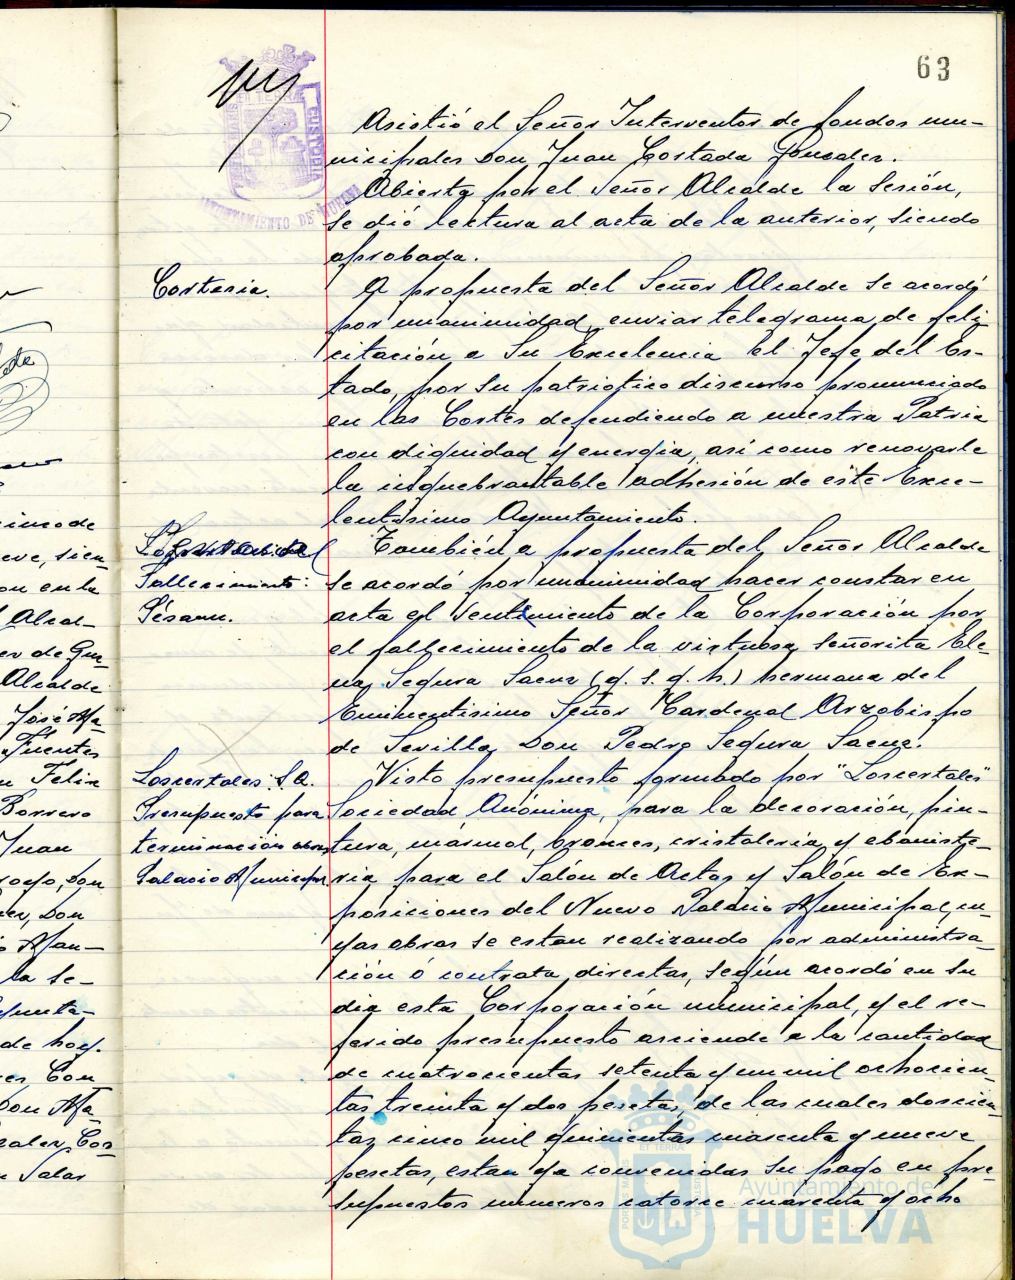 63
Asistió el Señor Interventor de fondos mu-
nicipales Don Juan Cortada Gonzalez.
Abierta por el Señor Alcalde la Sesión,
se dió lectura al acta de la anterior, siendo
aprobada.
Cortesia.
A propuesta del Señor Alcalde se acordó
por unanimidad, enviar telegrama de feli-
citación a Su Excelencia el Jefe del Es-
tado, por su patriotico discurso pronunciado
en las Cortes defendiendo a nuestra Patria
con dignidad y energia, así como renovarle
la inquebrantable adhesión de este Exce-
lentisimo Ayuntamiento.
Fallecimiento:
Pésame.
También a propuesta del Señor Alcalde
se acordó por unanimidad hacer constar en
acta el sentimiento de la Corporación por
el fallecimiento de la virtuosa señorita Ele-
na Segura Saenz (q. s. g. h.) hermana del
Eminentisimo Señor Cardenal Arzobispo
de Sevilla, Don Pedro Segura Saenz.
Loscertales S.A.
Presupuesto para
terminación obras
Palacio Municipal
Visto presupuesto formado por "Loscertales"
Sociedad Anónima, para la decoración, pin-
tura, mármol, bronces, cristaleria y ebaniste-
ria para el Salón de Actos y Salón de Ex-
posiciones del Nuevo Palacio Municipal, cu-
yas obras se estan realizando por administra-
ción ó contrata directas, según acordó en su
dia esta Corporación municipal, y el re-
ferido presupuesto asciende a la cantidad
de cuatrocientas setenta y un mil ochocien-
tas treinta y dos pesetas, de las cuales doscien-
tas cinco mil quinientas cuarenta y nueve
pesetas, estan ya convenidas su pago en pre-
supuestos numeros catorce cuarenta y ocho
Ayuntamiento de
HUELVA